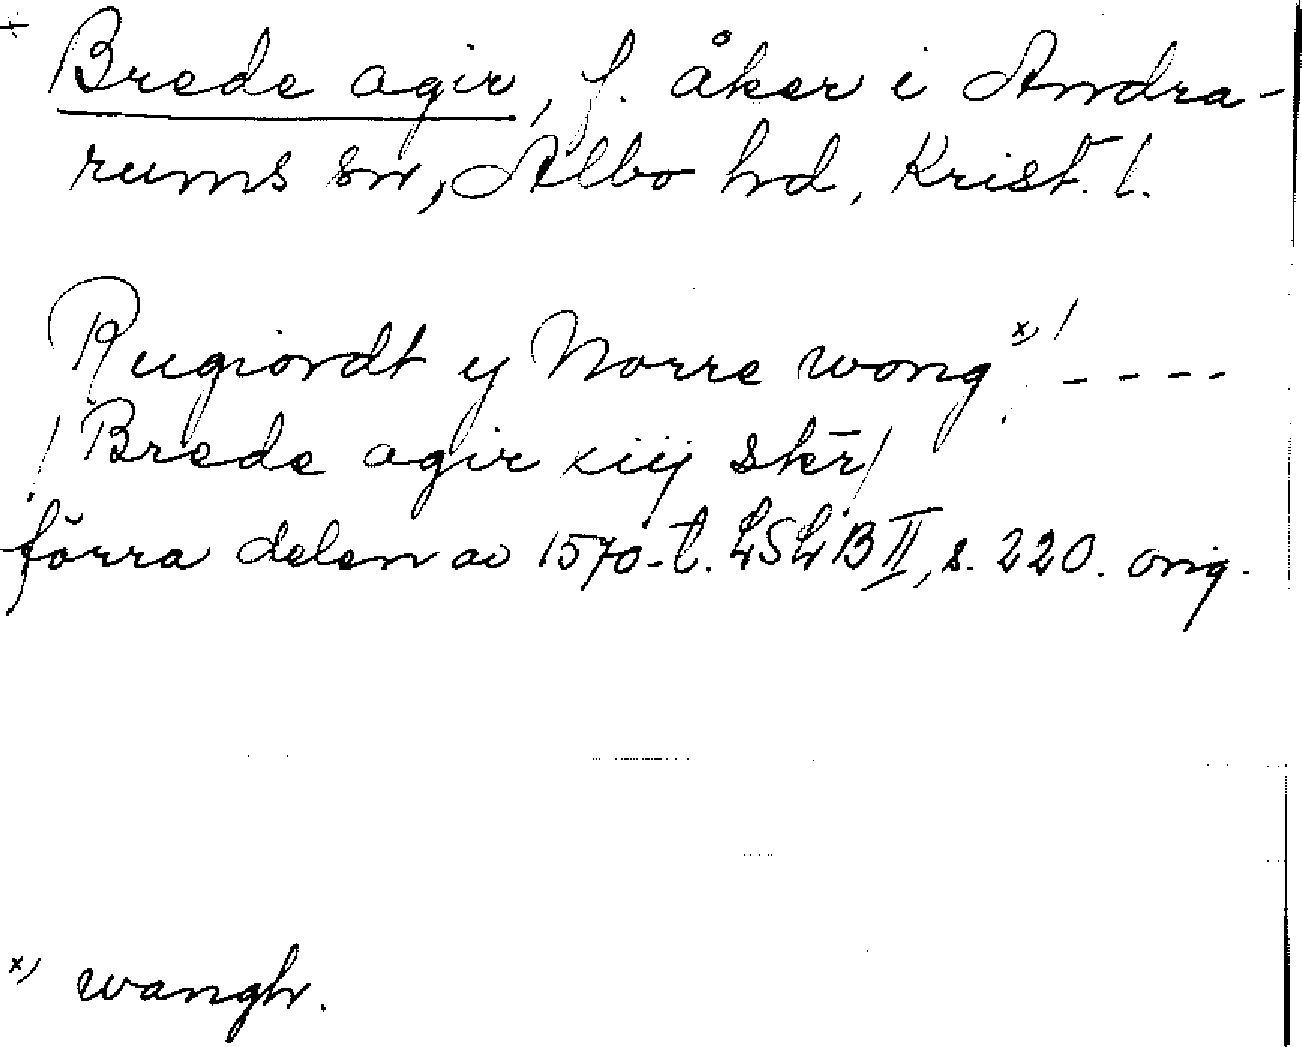 +
Brede agir, f. åker i Andra-
rums sn, Albo hd, Krist. l.
Rugiordt y Norre wong x) / - - - -
/ Brede agir xiij skr̄ /
förra delen av 1570-t. LSLB II, s. 220. orig.
x) wangh.